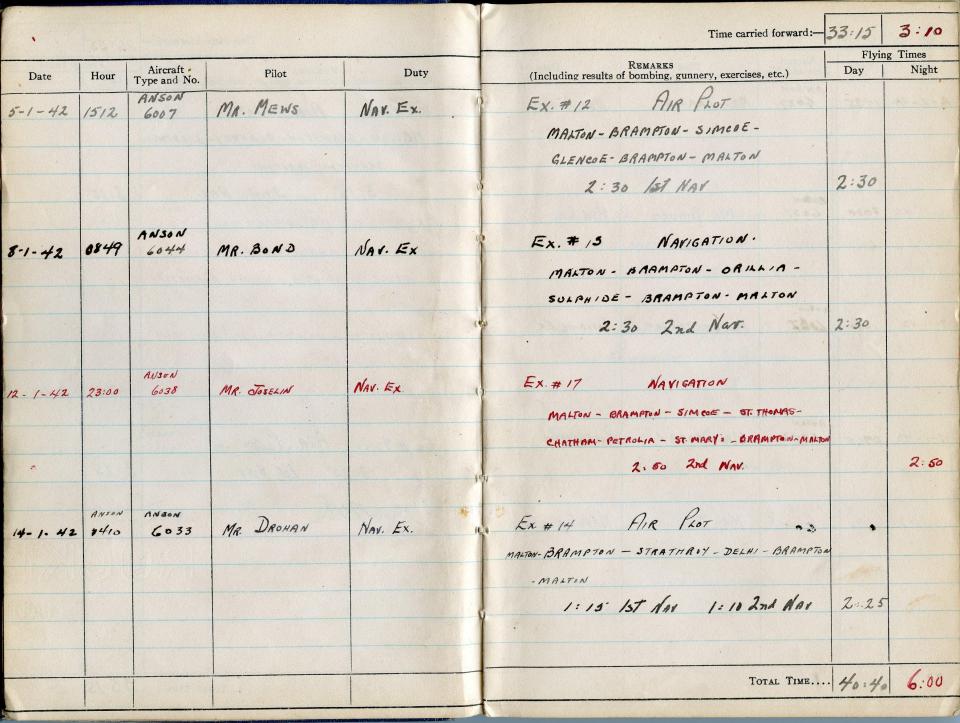 Time carried forward:— 33:15 3:10
Date Hour Aircraft Type and No. Pilot Duty REMARKS (Including results of bombing, gunnery, exercises, etc.) Flying Times Day Night
5-1-42 1512 ANSON 6007 MR. MEWS NAV. EX. EX. #12 AIR PLOT
MALTON-BRAMPTON-SIMCOE-
GLENCOE-BRAMPTON-MALTON
2:30 1st NAV 2:30
8-1-42 0849 ANSON 6044 MR. BOND NAV. EX EX. #13 NAVIGATION.
MALTON-BRAMPTON-ORILLIA-
SULPHIDE-BRAMPTON-MALTON
2:30 2nd Nav. 2:30
12-1-42 23:00 ANSON 6038 MR. JOSELIN NAV. EX. EX. #17 NAVIGATION
MALTON-BRAMPTON-SIMCOE-ST. THOMAS-
CHATHAM-PETROLIA-ST. MARY'S-BRAMPTON-MALTON
2:50 2nd NAV. 2:50
14-1-42 ANSON ANSON 6033 MR. DROHAN NAV. EX. EX #14 AIR PLOT
MALTON-BRAMPTON-STRATHROY-DELHI-BRAMPTON
-MALTON
1:15 1st NAV 1:10 2nd NAV 2:25
TOTAL TIME.... 40:40 6:00